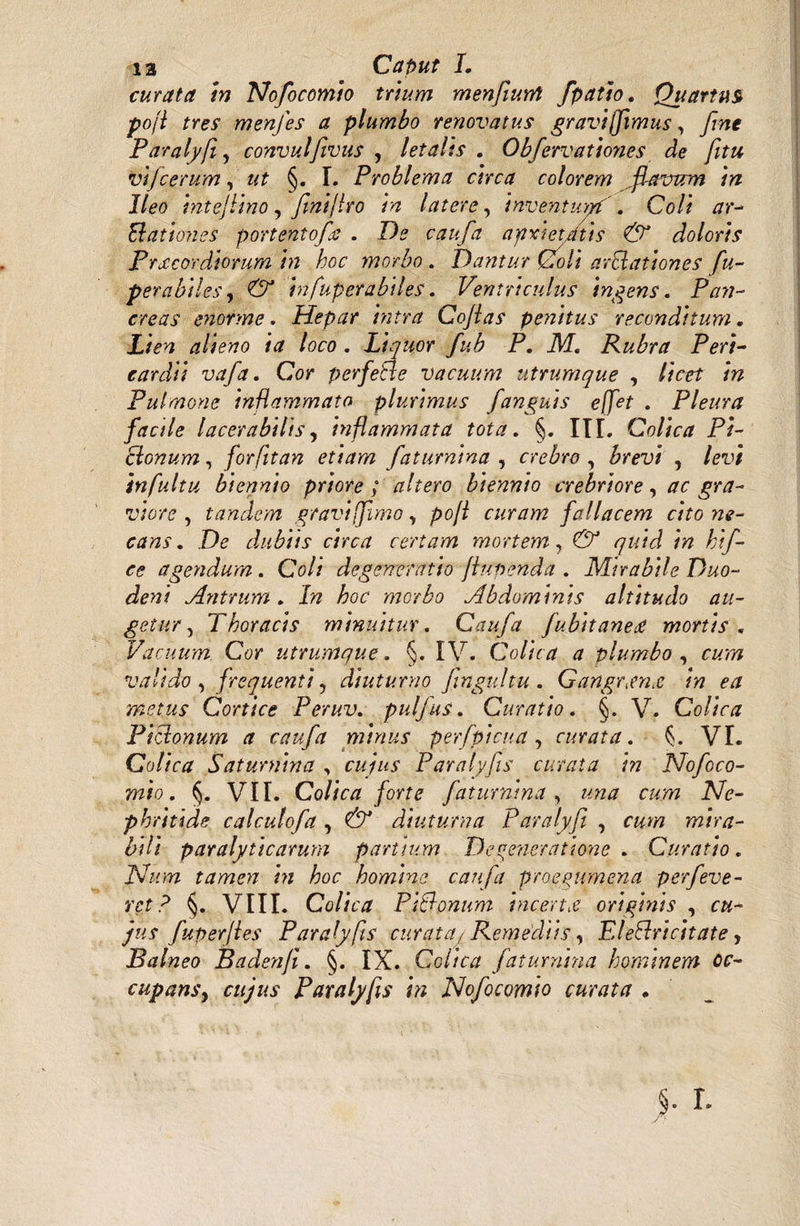 12 Caput I.
curata in Nosocomio trium mensium spatio. Quartus
post tres menses a plumbo renovatus gravissimus, sine
Paralysi, convulsivus, letalis. Observationes de situ
viscerum, ut §. I. Problema circa colorem flavum in
Ileo intestino, sinistro in latere, inventum. Coli ar-
ctationes portentosæ. De causa anxietatis & doloris
Præcordiorum in hoc morbo. Dantur Coli arctationes su-
perabiles, & insuperabiles. Ventriculus ingens. Pan-
creas enorme. Hepar intra Costas penitus reconditum.
Lien alieno ia loco. Liquor sub P. M. Rubra Peri-
cardii vasa. Cor perfecte vacuum utrumque, licet in
Pulmone inflammato plurimus sanguis esset. Pleura
facile lacerabilis, inflammata tota. §. III. Colica Pi-
ctonum, forsitan etiam saturnina, crebro, brevi, levi
insultu biennio priore; altero biennio crebriore, ac gra-
viore, tandem gravissimo, post curam fallacem cito ne-
cans. De dubiis circa certam mortem, & quid in his-
ce agendum. Coli degeneratio stupenda. Mirabile Duo-
deni Antrum. In hoc morbo Abdominis altitudo au-
getur, Thoracis minuitur. Causa subitaneæ mortis.
Vacuum Cor utrumque. §. IV. Colica a plumbo, cum
valido, frequenti, diuturno singultu. Gangrænæ in ea
metus Cortice Peruv. pulsus. Curatio. §. V. Colica
Pictonum a causa minus perspicua, curata. §. VI.
Colica Saturnina, cujus Paralysis curata in Nosoco-
mio. §. VII. Colica forte saturnina, una cum Ne-
phritide calculosa, & diuturna Paralysi, cum mira-
bili paralyticarum partium Degeneratione. Curatio.
Num tamen in hoc homine causa proegumena perseve-
ret? §. VIII. Colica Pictonum incertæ originis, cu-
jus superstes Paralysis curata, Remediis, Electricitate,
Balneo Badensi. §. IX. Colica saturnina hominem oc-
cupans, cujus Paralysis in Nosocomio curata.
§. I.